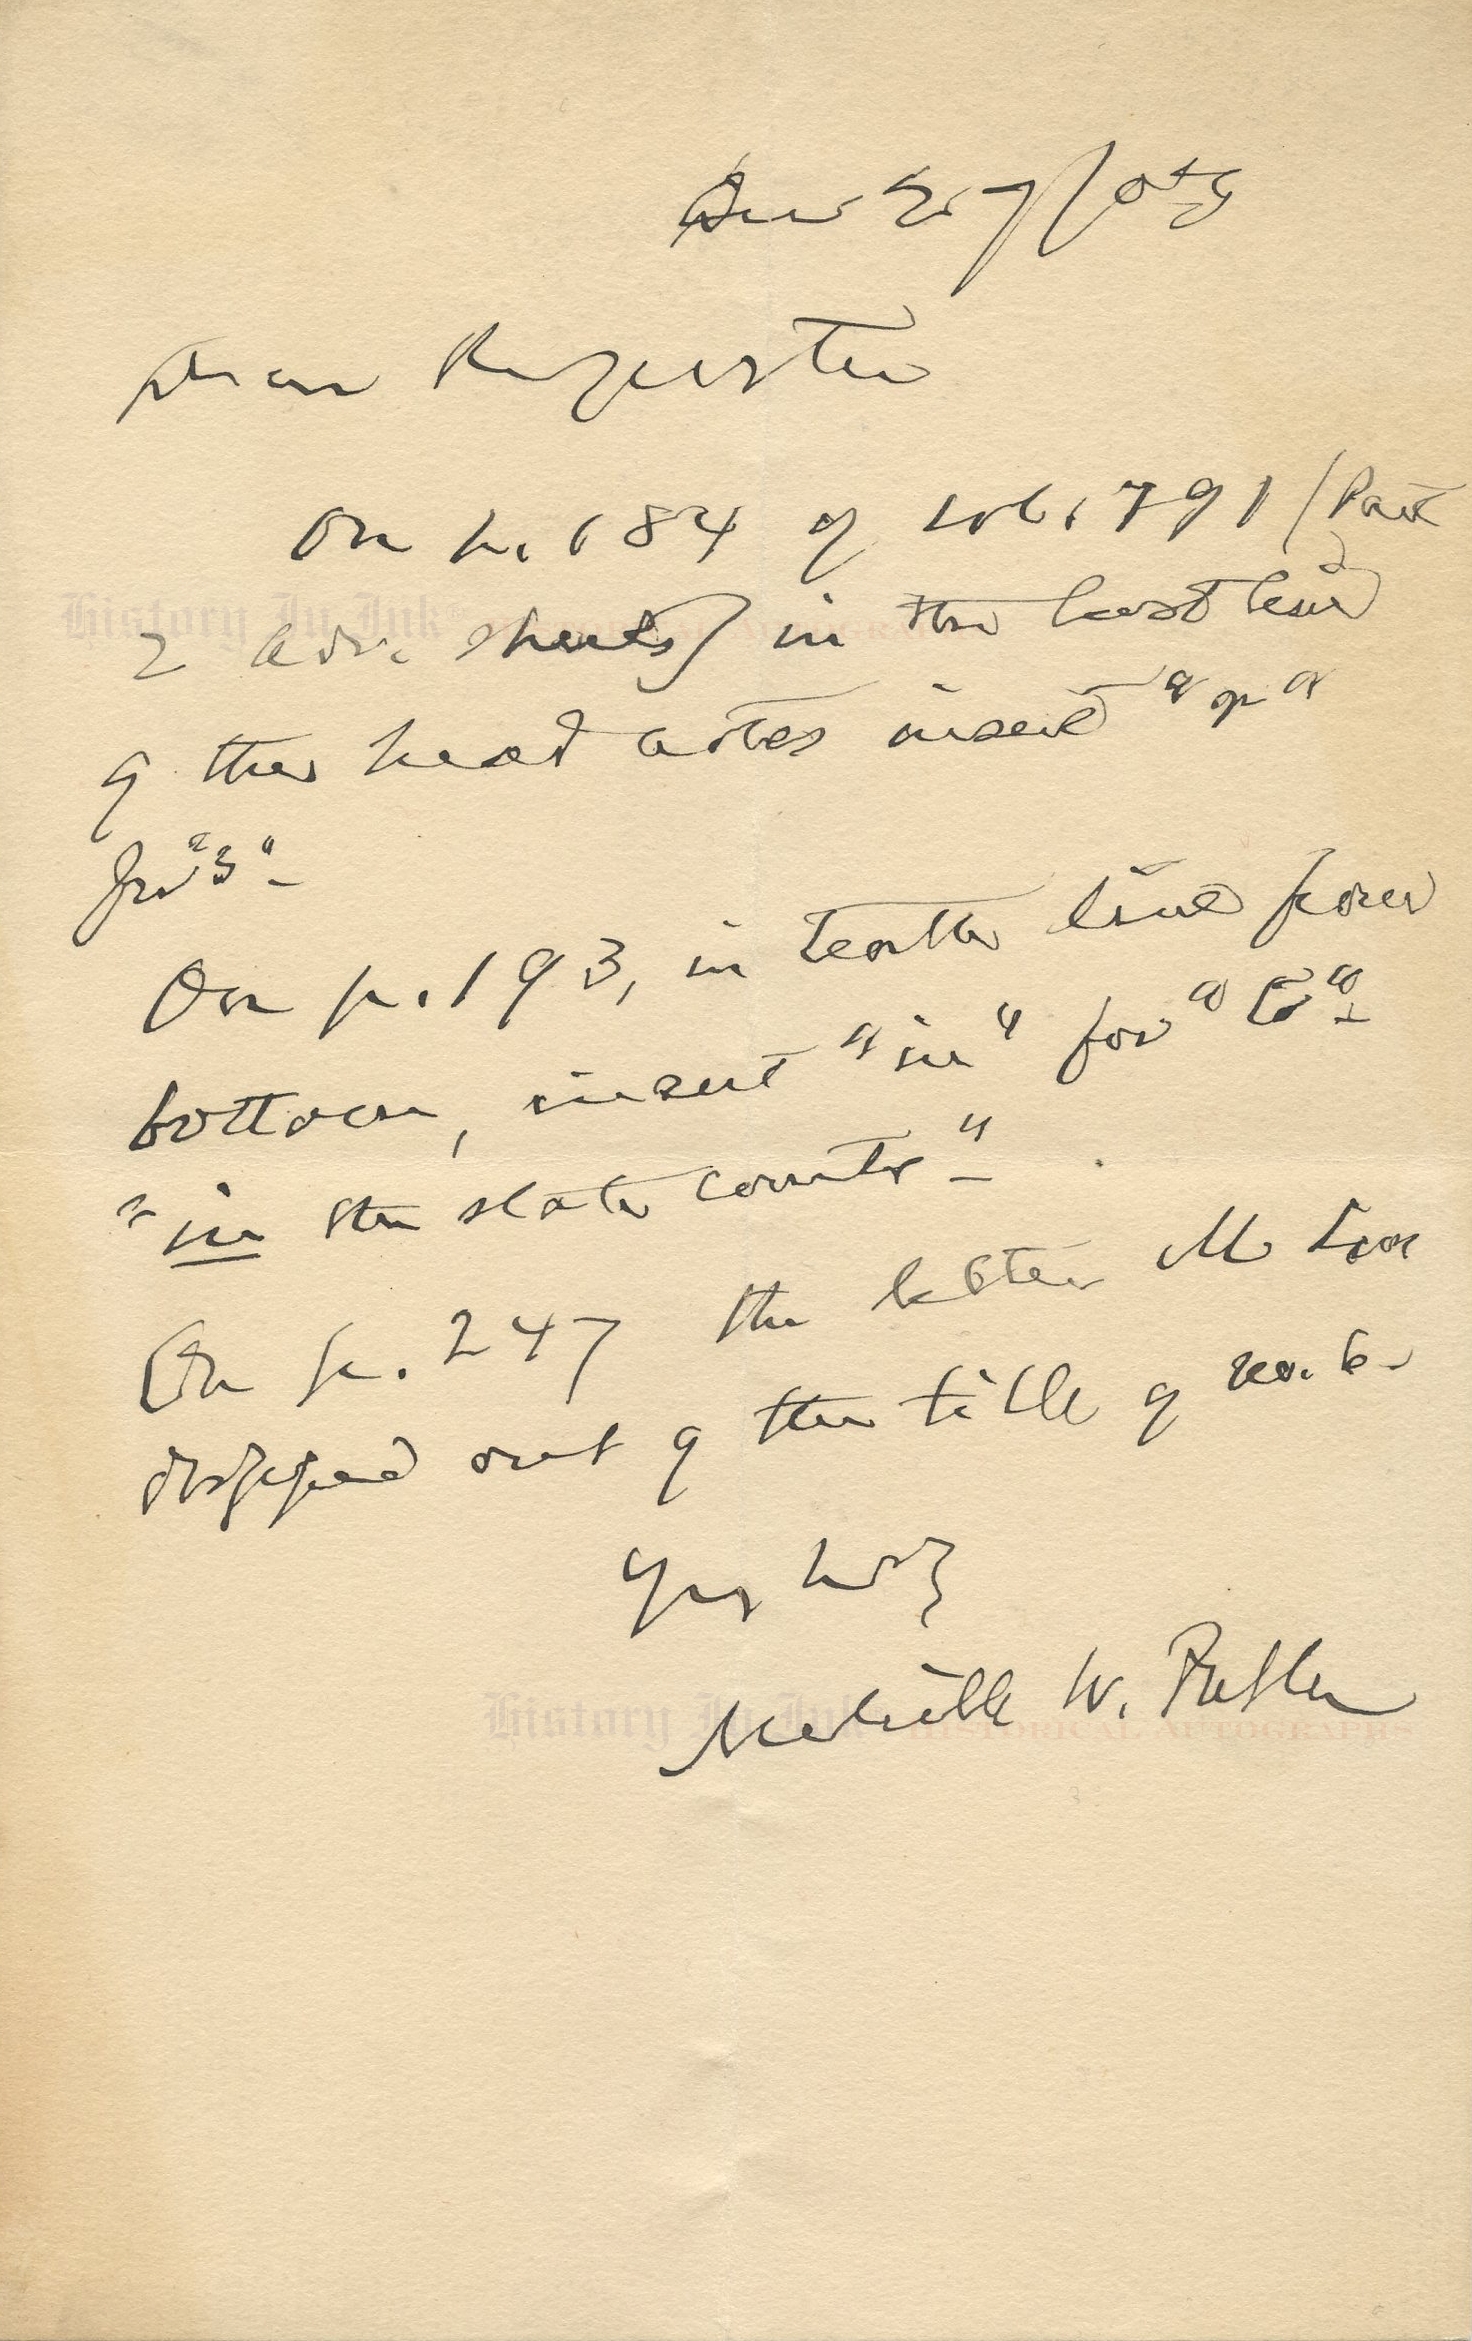 Dear Reporter
On p. 184 of vol. 179 (Part
2 adv. sheets) in the last line
of the head notes insert "of"
for "3" -
On p. 193, in tenth line from
bottom, insert "in" for "to" -
"in the state courts" -
On p. 247 the letter M
dropped out of the title of no. 6 -
Yrs
Melville W. Fuller
History In Ink HISTORICAL AUTOGRAPHS
History In Ink HISTORICAL AUTOGRAPHS